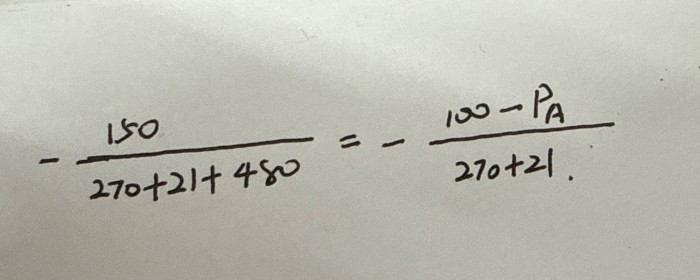 - 150/(270+21+480) = - (100-P_A)/(270+21).